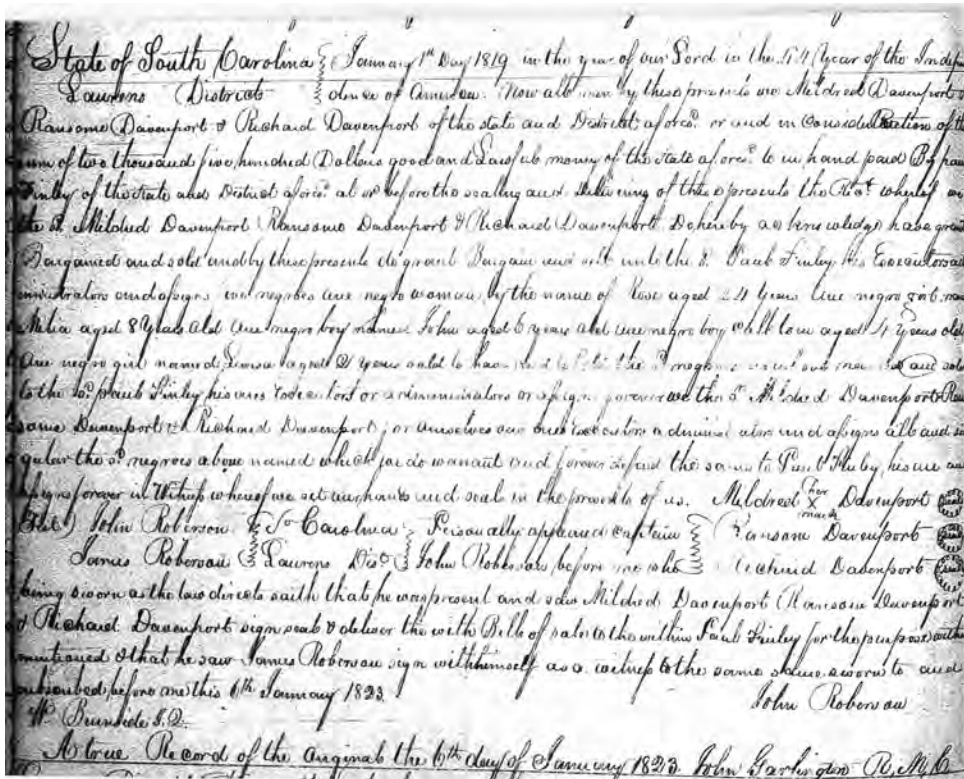 State of South Carolina January 1st Day 1819 in the year of our Lord in the 44 Year of the Indepen
Laurens District dence of America. Now all men by these presents we Mildred Davenport &
Ransome Davenport & Richard Davenport of the state and District aforesd. or and in Consideration of the
sum of two thousand five hundred Dollars good and Lawful money of the state aforesd. to us hand paid By paul
Finley of the state and District aforesd. at or before the sealing and delivering of these presents the whereof we
the sd. Mildred Davenport Ransome Davenport & Richard Davenport Do hereby acknowledge have granted
Bargained and sold and by these presents do grant Bargain and sell unto the sd. Paul Finley his Executors ad
ministrators and assigns negroes one negro woman by the name of Rose aged 24 Years One negro girl
Milia aged 8 Years old One negro boy named John aged 6 years old one negro boy Call aged 4 Years old
One negro girl named aged 2 Years to have and to the sd. negroes and sold
to the sd. paul Finley his Executors or administrators or assigns forever we the sd. Mildred Davenport & Ran
some Davenport & Richard Davenport for ourselves our Executors administrators and assigns all and sin
gular the sd. negroes above named which do warrant and forever defend the same to Paul Finley, his
assigns forever in Witness whereof we set our hands and seals in the presents of us. Mildred her X mark Davenport
John Roberson So Carolina Personally appeared Captain Ransom Davenport
James Roberson Laurens Dist John Roberson before me who Richard Davenport
being sworn as the law directs saith that he was present and saw Mildred Davenport Ransome Davenport
& Richard Davenport sign seal & deliver the with Bill of sale to the within Paul Finley for the purpose within
mentioned & that he saw James Roberson sign with himself as a witness to the same sworn to and
subscribed before me this 6th January 1823. John Roberson
W. Burnside J.Q.
A true Record of the original the 6th day of January 1823. John Garlington R.M.C.